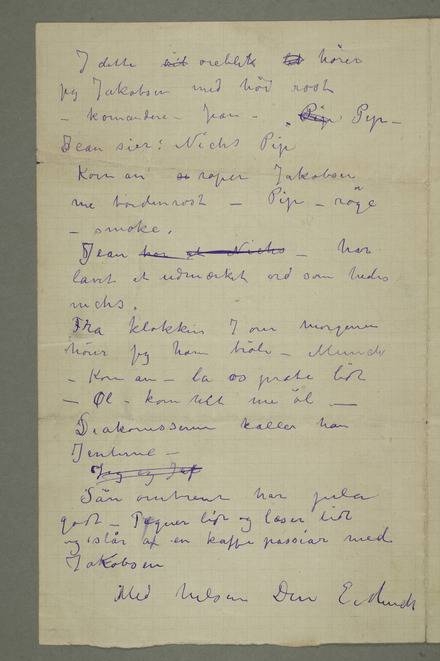 I dette oieblik hörer
jeg Jakobsen med höi rost
– komandere – Jean – "Pip Pip –
Jean sier: Nichs Pip
Kom an' so roper Jakobsen
me tordenrost – Pip – röge
– smoke.
Jean har et Nichs – har
lavet et udmærket ord som hedes
nichs.
Fra klokken 7 om morgenen
hörer jeg ham bröle – Munch
– Kom an – la os prate lidt
– Øl – kom till me öl —
Diakonisserne kaller han
Jenterne –
Jeg og Jef
Sån omtrent har jeg det
godt – Tegner lidt og læser lidt
og slår af en kaffe passiar med
Jakobsen
Med hilsen Din E. Munch